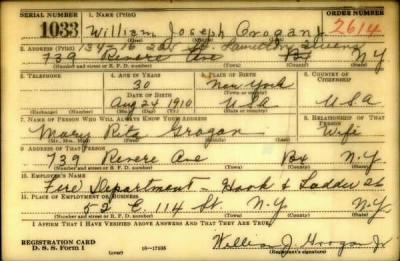 SERIAL NUMBER 1. NAME (Print) ORDER NUMBER
1033 William Joseph Grogan Jr 2614
(First) (Middle) (Last)
2. ADDRESS (Print)
739 Revere Ave Bx N Y
(Number and street or R. F. D. number) (Town) (County) (State)
3. TELEPHONE 4. AGE IN YEARS 5. PLACE OF BIRTH 6. COUNTRY OF CITIZENSHIP
30 New York
DATE OF BIRTH
Aug 24 1910 U S A U.S.A
(Exchange) (No.) (Mo.) (Day) (Yr.) (State or country)
7. NAME OF PERSON WHO WILL ALWAYS KNOW YOUR ADDRESS 8. RELATIONSHIP OF THAT PERSON
Mary Rita Grogan Wife
(Mr., Mrs., Miss) (First) (Middle) (Last)
9. ADDRESS OF THAT PERSON
739 Revere Ave Bx N.Y.
(Number and street or R. F. D. number) (Town) (County) (State)
10. EMPLOYER'S NAME
Fire Department - Hook & Ladder 26
11. PLACE OF EMPLOYMENT OR BUSINESS
52 E. 114 St. N.Y N.Y
(Number and street or R. F. D. number) (Town) (County) (State)
I AFFIRM THAT I HAVE VERIFIED ABOVE ANSWERS AND THAT THEY ARE TRUE.
REGISTRATION CARD
D. S. S. Form 1 (over) 16—17105 William J Grogan Jr
(Registrant's signature)